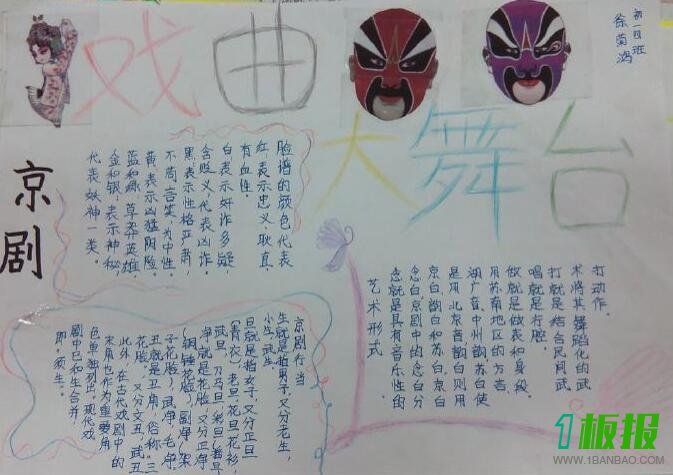 戏曲
大舞台
初一四班
徐菊鸿
京剧
脸谱的颜色代表
红：表示忠义、耿直、
有血性。
白：表示奸诈多疑，
含贬义，代表凶诈。
黑：表示性格严肃，
不苟言笑，为中性。
黄：表示凶猛阴险
蓝和绿：草莽英雄
金和银：表示神秘
代表妖神一类。
打动作。
术将其舞蹈化的武
打就是结合民间武
唱就是行腔。
做就是做表和身段。
用苏南地区的方言。
湖广音、中州韵，苏白使
是用北京音，韵白则用
京白、韵白和苏白，京白
念白：京剧中的念白分
念就是具有音乐性的
艺术形式
京剧行当
生就是指男子，又分老生，
小生，武生。
旦就是指女子，又分正旦
(青衣)，老旦，花旦，花衫，
武旦，刀马旦，彩旦
净就是花脸，又分正净
(铜锤花脸)，副净(架
子花脸)，武净，毛净。
丑就是丑角，俗称“三
花脸”，又分文丑，武丑
此外，在古代戏剧中的
末角也作为重要角
色单独列，现代戏
剧中已和生合并，
即：须生。
1板报
WWW.1BANBAO.COM